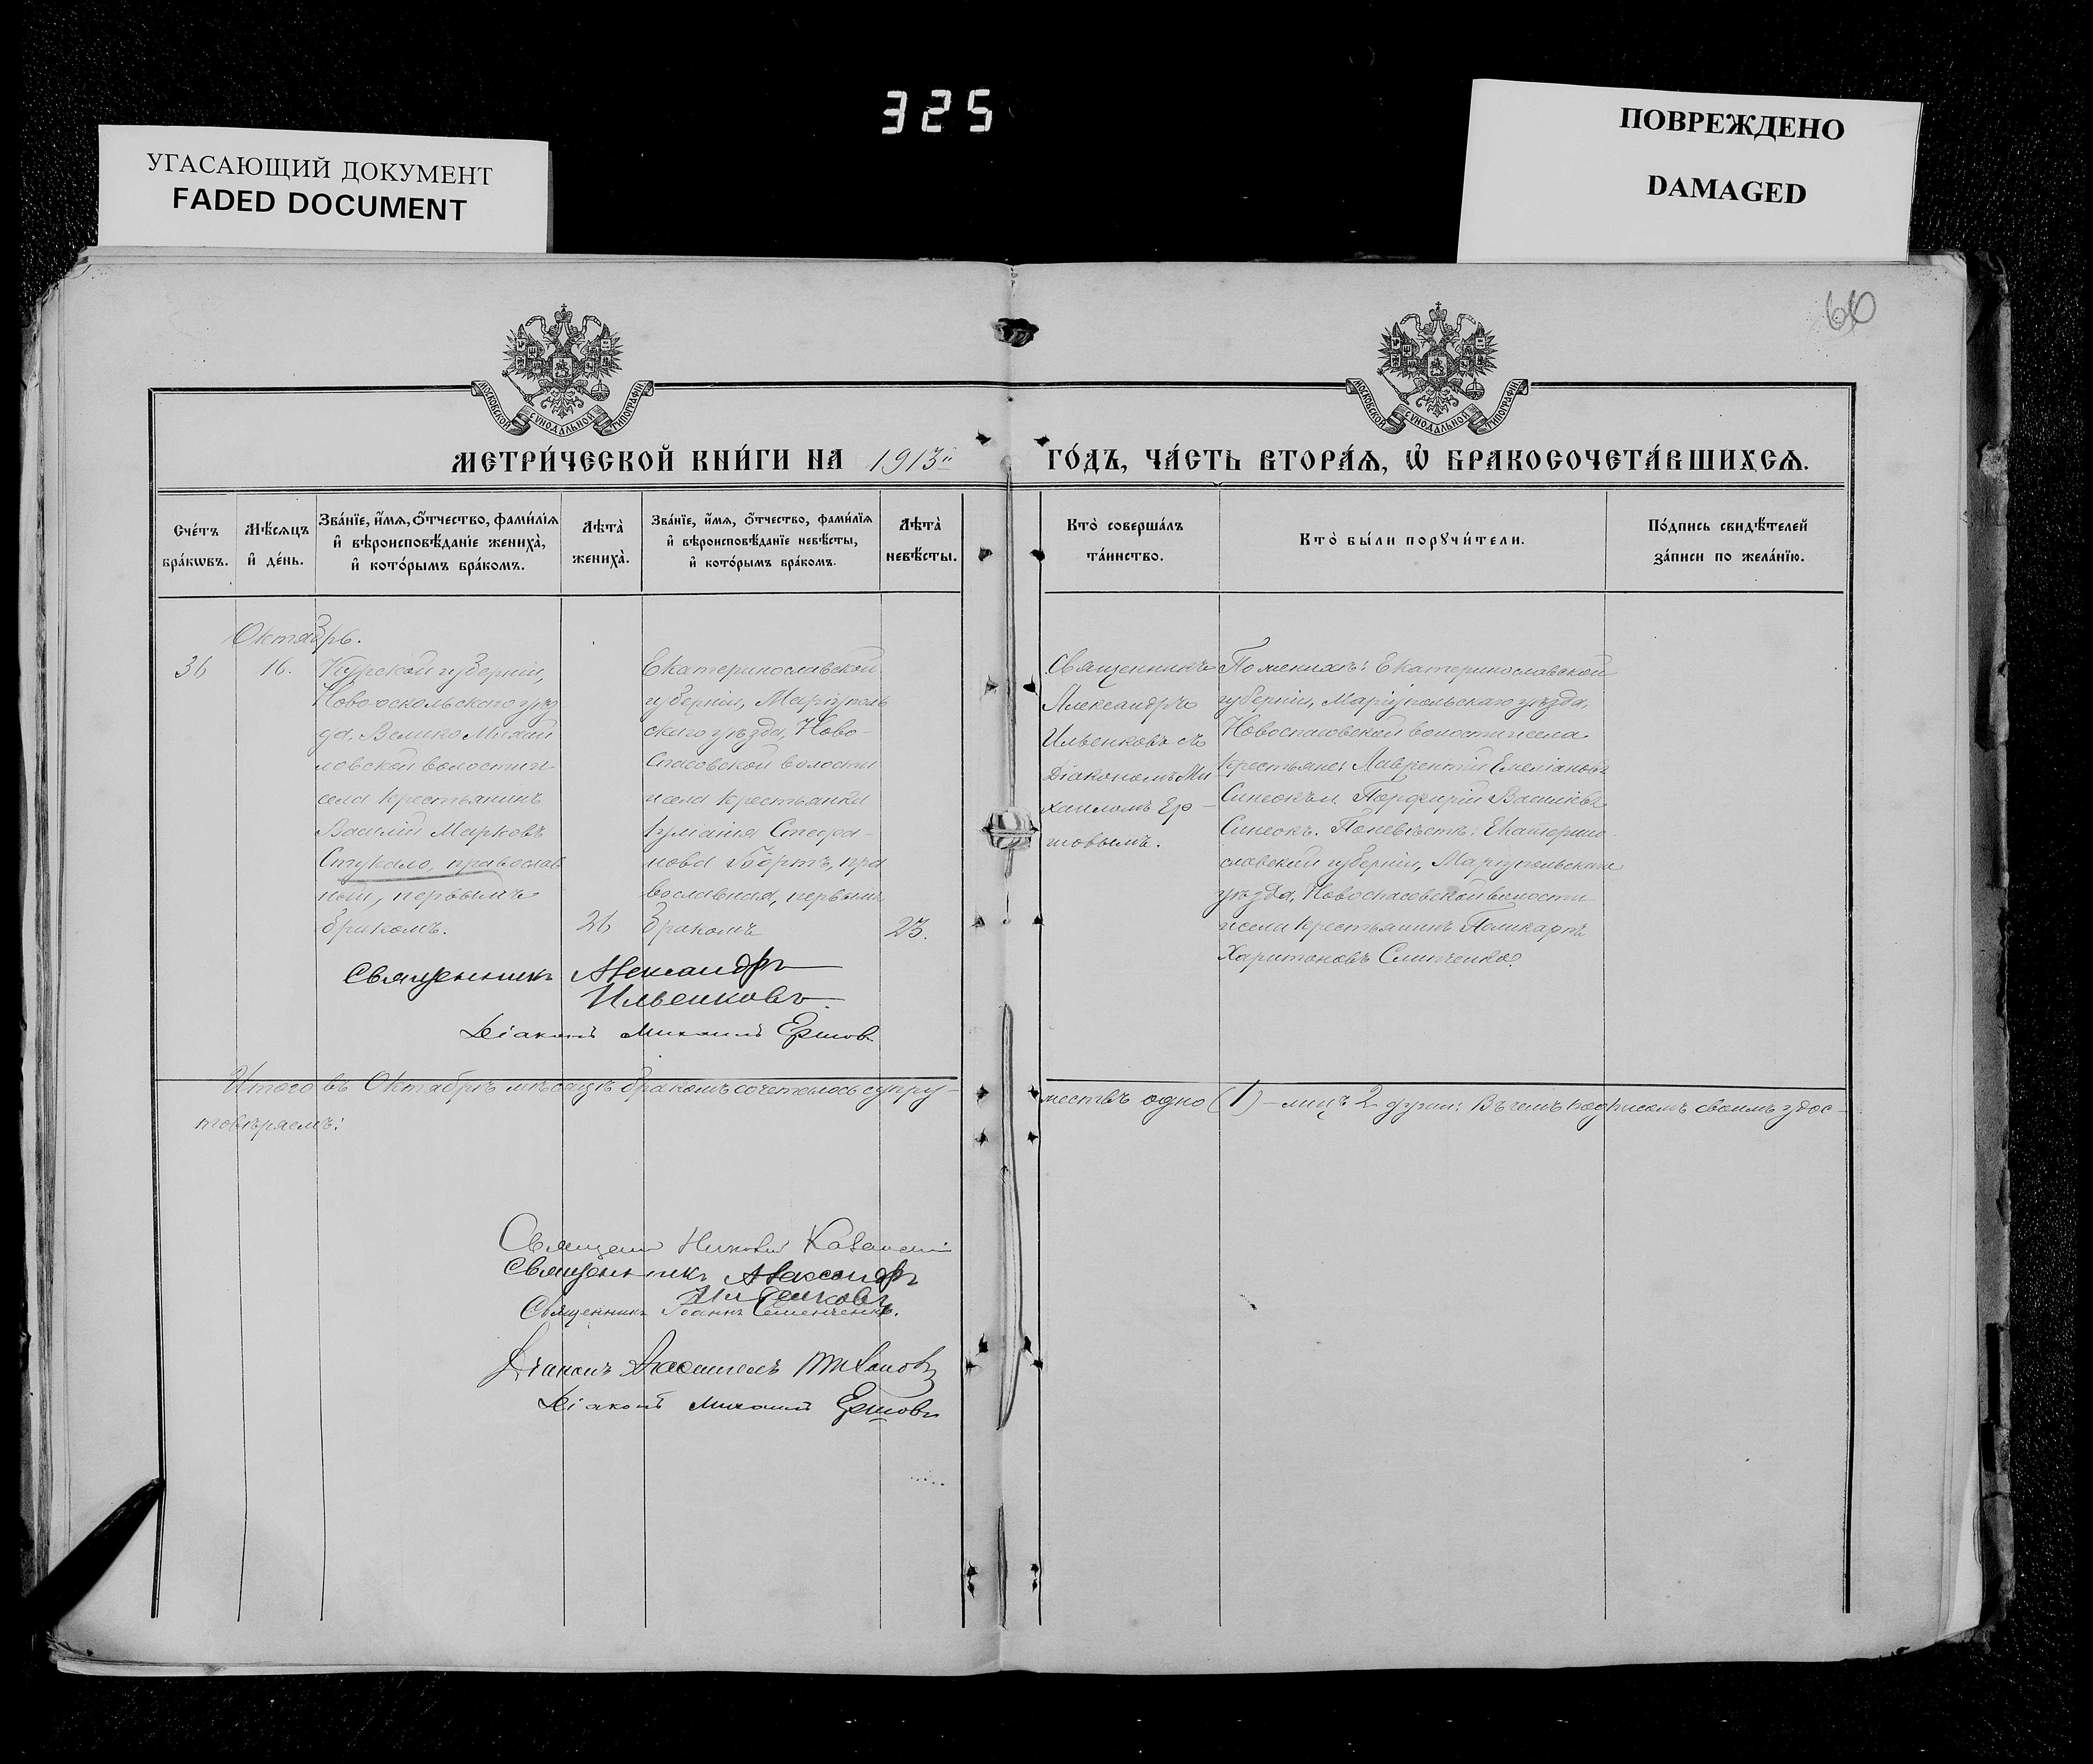 325
УГАСАЮЩИЙ ДОКУМЕНТ
FADED DOCUMENT
ПОВРЕЖДЕНО
DAMAGED
60
МОСКОВСКОЙ СУНОДАЛЬНОЙ ТИПОГРАФІИ
МОСКОВСКОЙ СУНОДАЛЬНОЙ ТИПОГРАФІИ
МЕТРИ́ЧЕСКОЙ КНИ́ГИ НА 1913й ГО́ДЪ, ЧА́СТЬ ВТОРА́Ѧ, Ѡ҆ БРАКОСОЧЕТА́ВШИХСѦ.
Сче́тъ бра́кѡвъ.
Мѣ́сѧцъ и҆ де́нь.
Зва́нїе, и҆́мѧ, ѻ҆́тчество, фами́лїѧ
и҆ вѣроисповѣ́данїе жениха̀,
и҆ кото́рымъ бра́комъ.
Лѣта̀ жениха̀.
Зва́нїе, и҆́мѧ, ѻ҆́тчество, фами́лїѧ
и҆ вѣроисповѣ́данїе невѣ́сты,
и҆ кото́рымъ бра́комъ.
Лѣта̀ невѣ́сты.
Кто̀ соверша́лъ
та́инство.
Кто̀ бы́ли порꙋчи́тели.
По́дпись свидѣ́телей
за́писи по жела́нїю.
Октябрь.
36
16.
Курской губерніи,
Новооскольскаго уѣз
да, Велико Михай
ловской волости и
села крестьянинъ
Василій Марковъ
Стукало, православ
ной, первымъ
бракомъ.
26
Екатеринославской
губерніи, Маріуполь
скаго уѣзда, Ново-
Спасовской волости
и села крестьянка
Іуліанія Стефа-
нова Бортъ, пра
вославная, первымъ
бракомъ
23.
Священникъ
Александръ
Ильенковъ съ
Діакономъ Ми
хаиломъ Ер-
шовымъ.
По женихѣ: Екатеринославской
губерніи, Маріупольскаго уѣзда,
Новоспасовской волости и села
крестьяне: Лаврентій Емеліановъ
Синеокъ и Порфирій Васильевъ
Синеокъ. По невѣстѣ: Екатерино-
славской губерніи, Маріупольскаго
уѣзда, Новоспасовской волости
и села крестьянинъ Поликарпъ
Харитоновъ Слипченко.
Священникъ Александръ
Ильенковъ.
Діаконъ Михаилъ Ершовъ
Итого въ Октябрѣ мѣсяцѣ бракомъ сочеталось супру-
жествъ одно (1) – лицъ 2 души: Въ чемъ подписомъ своимъ удос-
товѣряемъ:
Священникъ Николай Казанскій
Священникъ Александръ
Ильенковъ
Священникъ Іоаннъ Семенченко.
Діаконъ Тихоновъ
Діаконъ Михаилъ Ершовъ